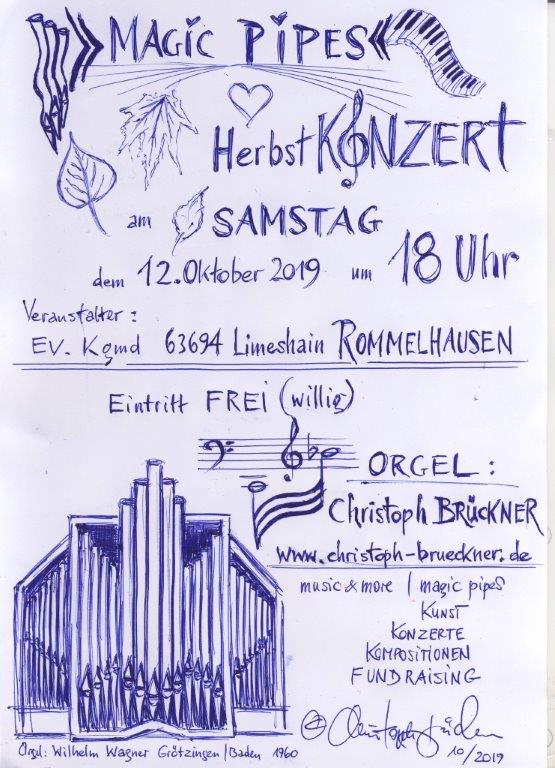 MAGiC PiPES
Herbst KONZERT
am SAMSTAG
dem 12. Oktober 2019 um 18 Uhr
Veranstalter:
EV. Kgmd 63694 Limeshain ROMMELHAUSEN
Eintritt FREi (willig)
ORGEL:
Christoph BRÜCKNER
www.christoph-brueckner.de
music & more / magic pipes
KUNST
KONZERTE
KOMPOSITIONEN
FUNDRAISING
Christoph Brückner
10/2019
Orgel: Wilhelm Wagner Grötzingen/Baden 1960